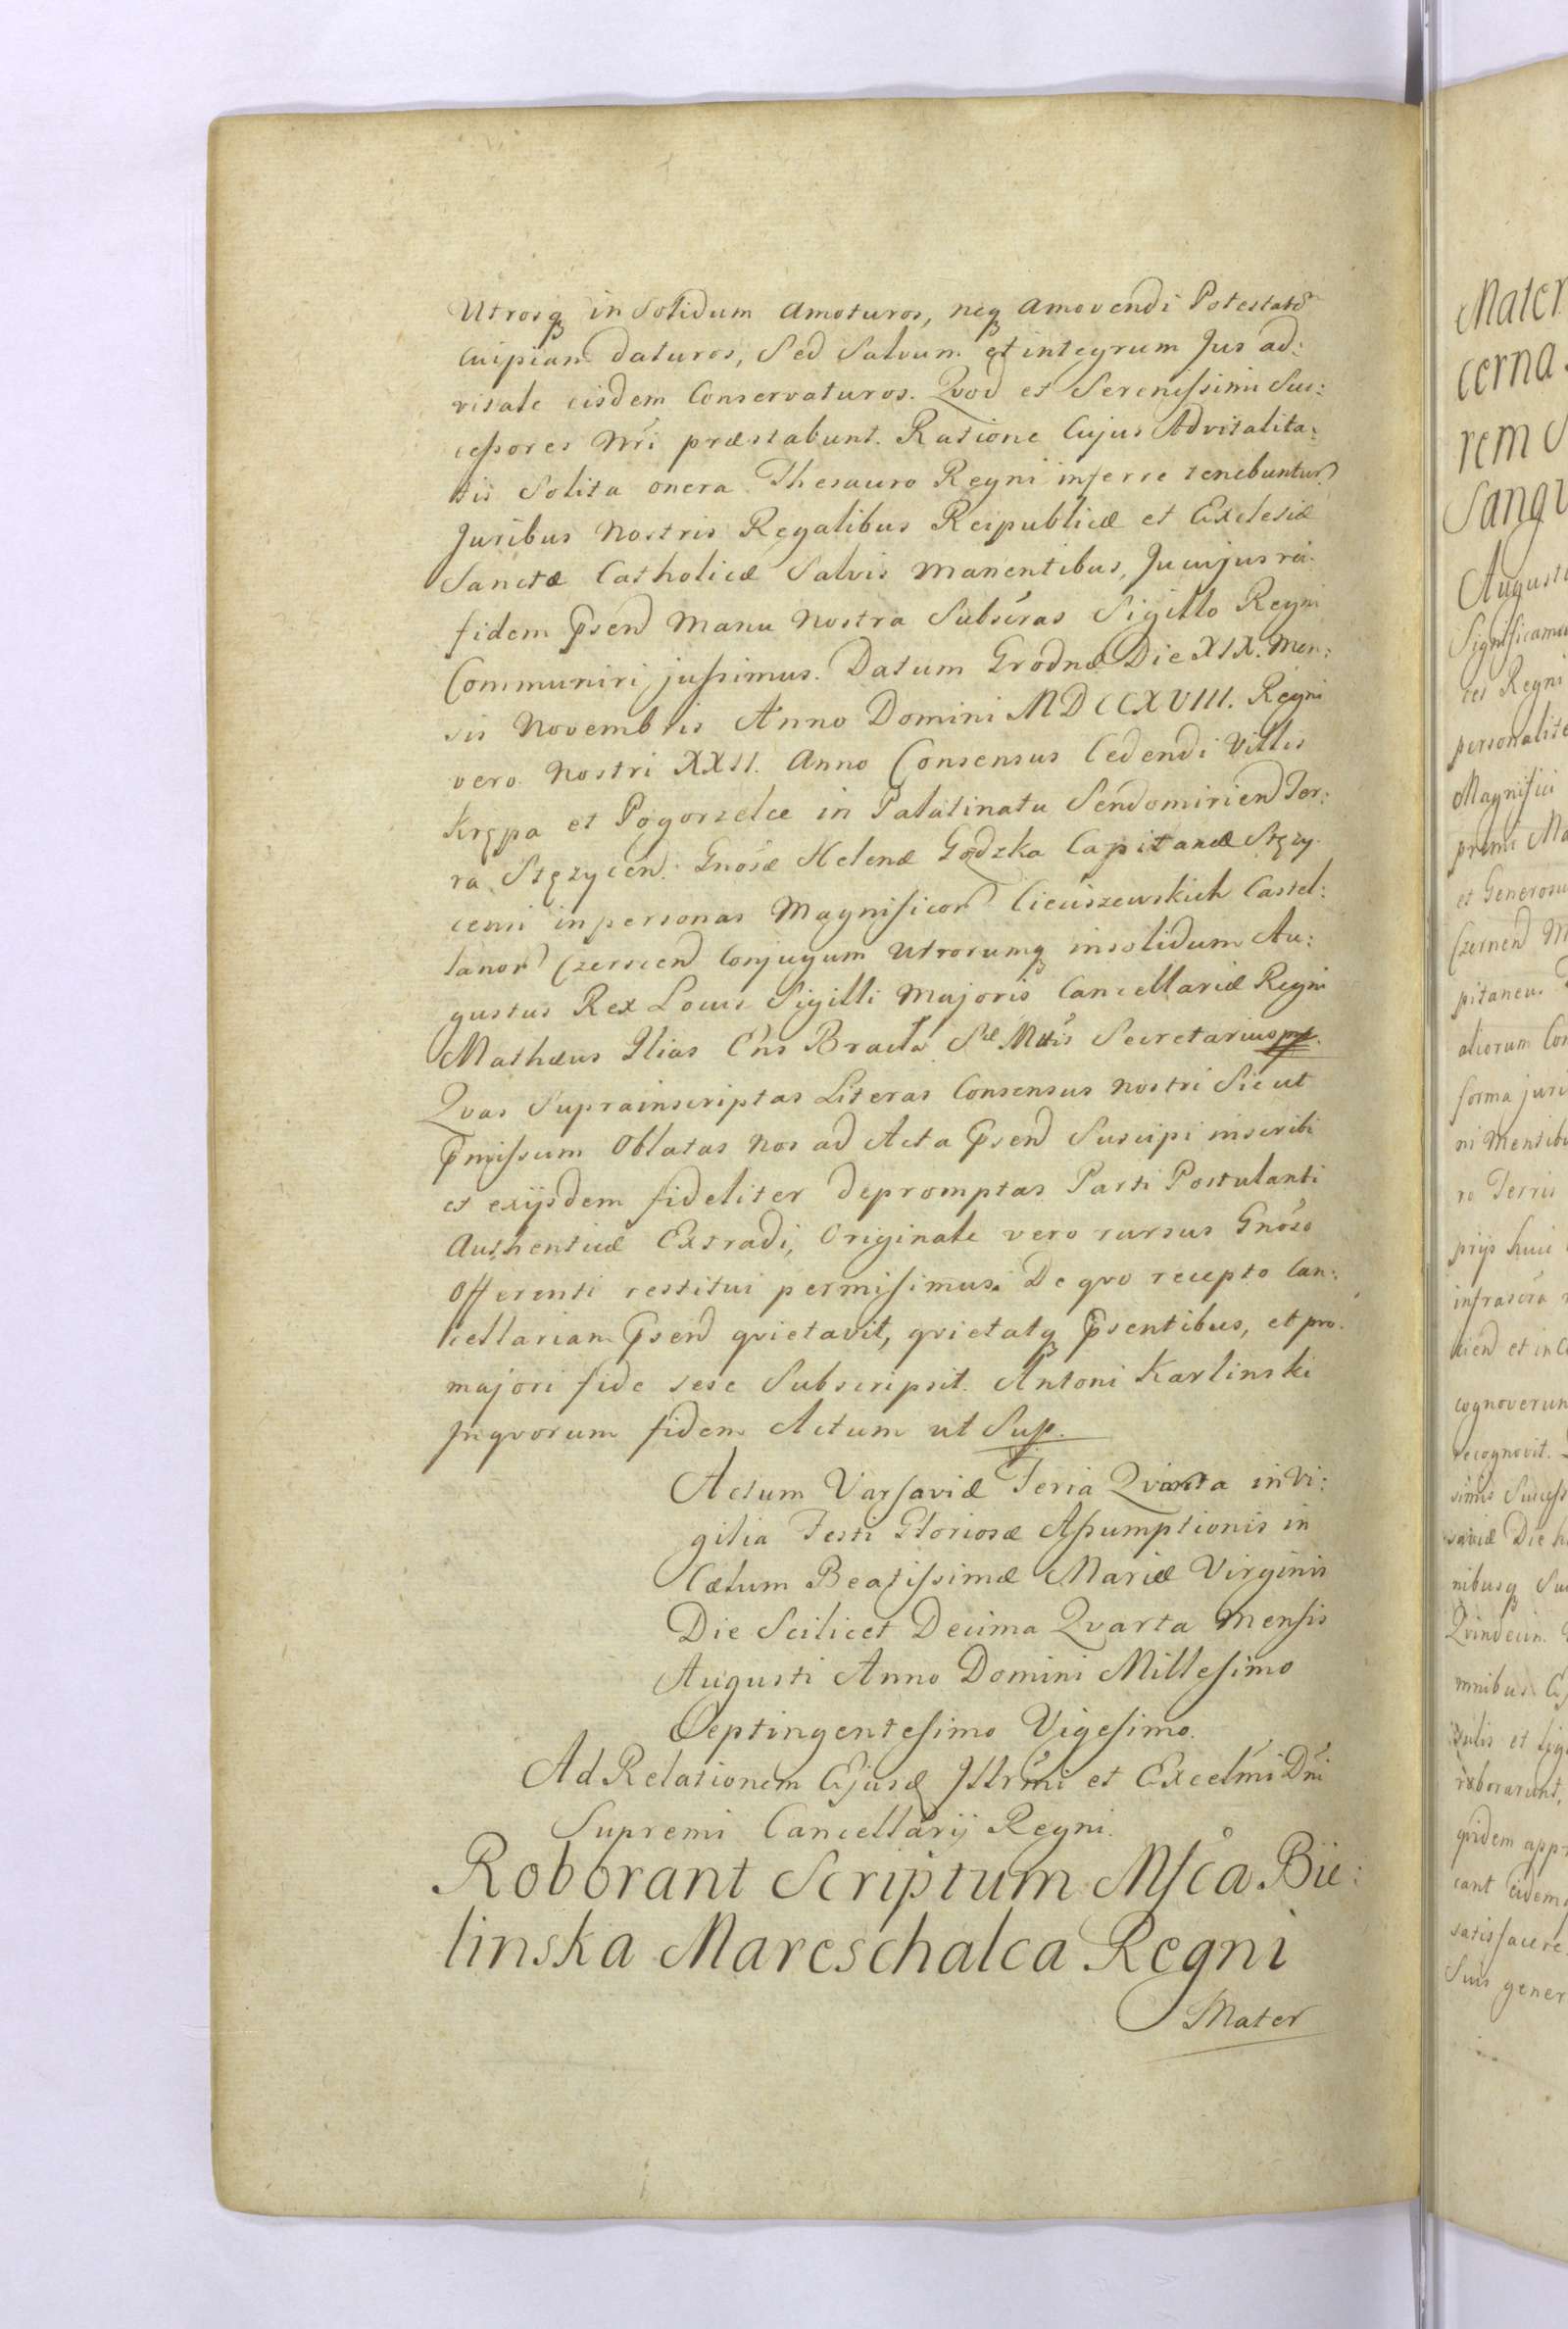 Utrosq in Solidum amoturos, neq amovendi Potestatē
cuipiam daturos, Sed Salvum et integrum Jus ad:
vitale eisdem Conservaturos. Qvod et Serenissimi Suc:
cessores Nri præstabunt. Ratione Cujus Advitalita:
tis Solita onera Thesauro Regni inferre tenebuntur
Juribus Nostris Regalibus Reipublicæ et Ecclesiæ
Sanctæ Catholicæ Salvis manentibus, In cujus rei
fidem Psen Manu Nostra Subscras Sigillo Regni
Communiri jussimus. Datum Grodnæ Die XIX. Men:
sis Novembris Anno Domini MDCCXVIII. Regni
vero Nostri XXII. Anno Consensus Cedendi Villis
Krępa et Pogorzelce in Palatinatu Sendomirien Ter:
ra Stęzycen. Gnosæ Helenæ Godzka Capitaneæ Stęzy
censi in personas Magnificor Cieciszewskich Castel:
lanor Czerscen Conjugum Utrorumq insolidum Au:
gustus Rex Locus Sigilli Majoris Cancellariæ Regni
Mathæus Ilias Ens Sæ Mttis Secretarius
Qvas Suprainscriptas Literas Consensus Nostri Sicut
Pmissum Oblatas Nos ad Acta Psen Suscipi inscribi
et exijsdem fideliter depromptas Parti Postulanti
Authenticæ Extradi, Originale vero rursus Gnoso
Offerenti restitui permisimus. De qvo recepto Can:
cellariam Psen qvietavit, qvietatq Psentibus, et pro
majori fide sese Subscripsit. Antoni Karlinski
Inqvorum fidem Actum ut Sup.
Actum Varsaviæ Feria Qvarta in Vi:
gilia Festi Gloriosæ Assumptionis in
Cælum Beatissimæ Mariæ Virginis
Die Scilicet Decima Qvarta Mensis
Augusti Anno Domini Millesimo
Septingentesimo Vigesimo.
Ad Relationem Ejusd Illrmi et Excelmi Dni
Supremi Cancellarij Regni.
Roborant Scriptum Mfca Bie:
linska Mareschalca Regni
Mater
Mater
cerna
rem
Sangv
August
Significamus
ces Regni
personalite
Magnifici
primi Ma
et Generosu
Czernen M
pitaneu
aliorum Con
forma juri
ni Mentibu
ro Terris
prijs huic
infrascra
cien et in
cognoverun
recognovit.
simis Success
saviæ Die
nibusq Su
Qvindecim
mnibus
roborarunt,
qvidem app
cant eidem
satisfacere
Suis gener